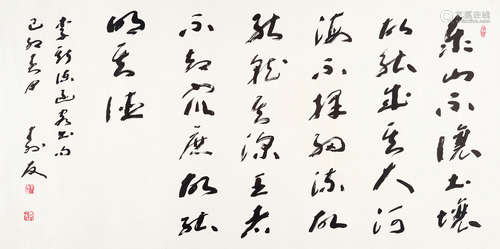 泰山不讓土壤
故能成其大河
海不擇細流故
能就其深王者
不卻眾庶故能
明其德
李斯諫逐客書句
己卯春日